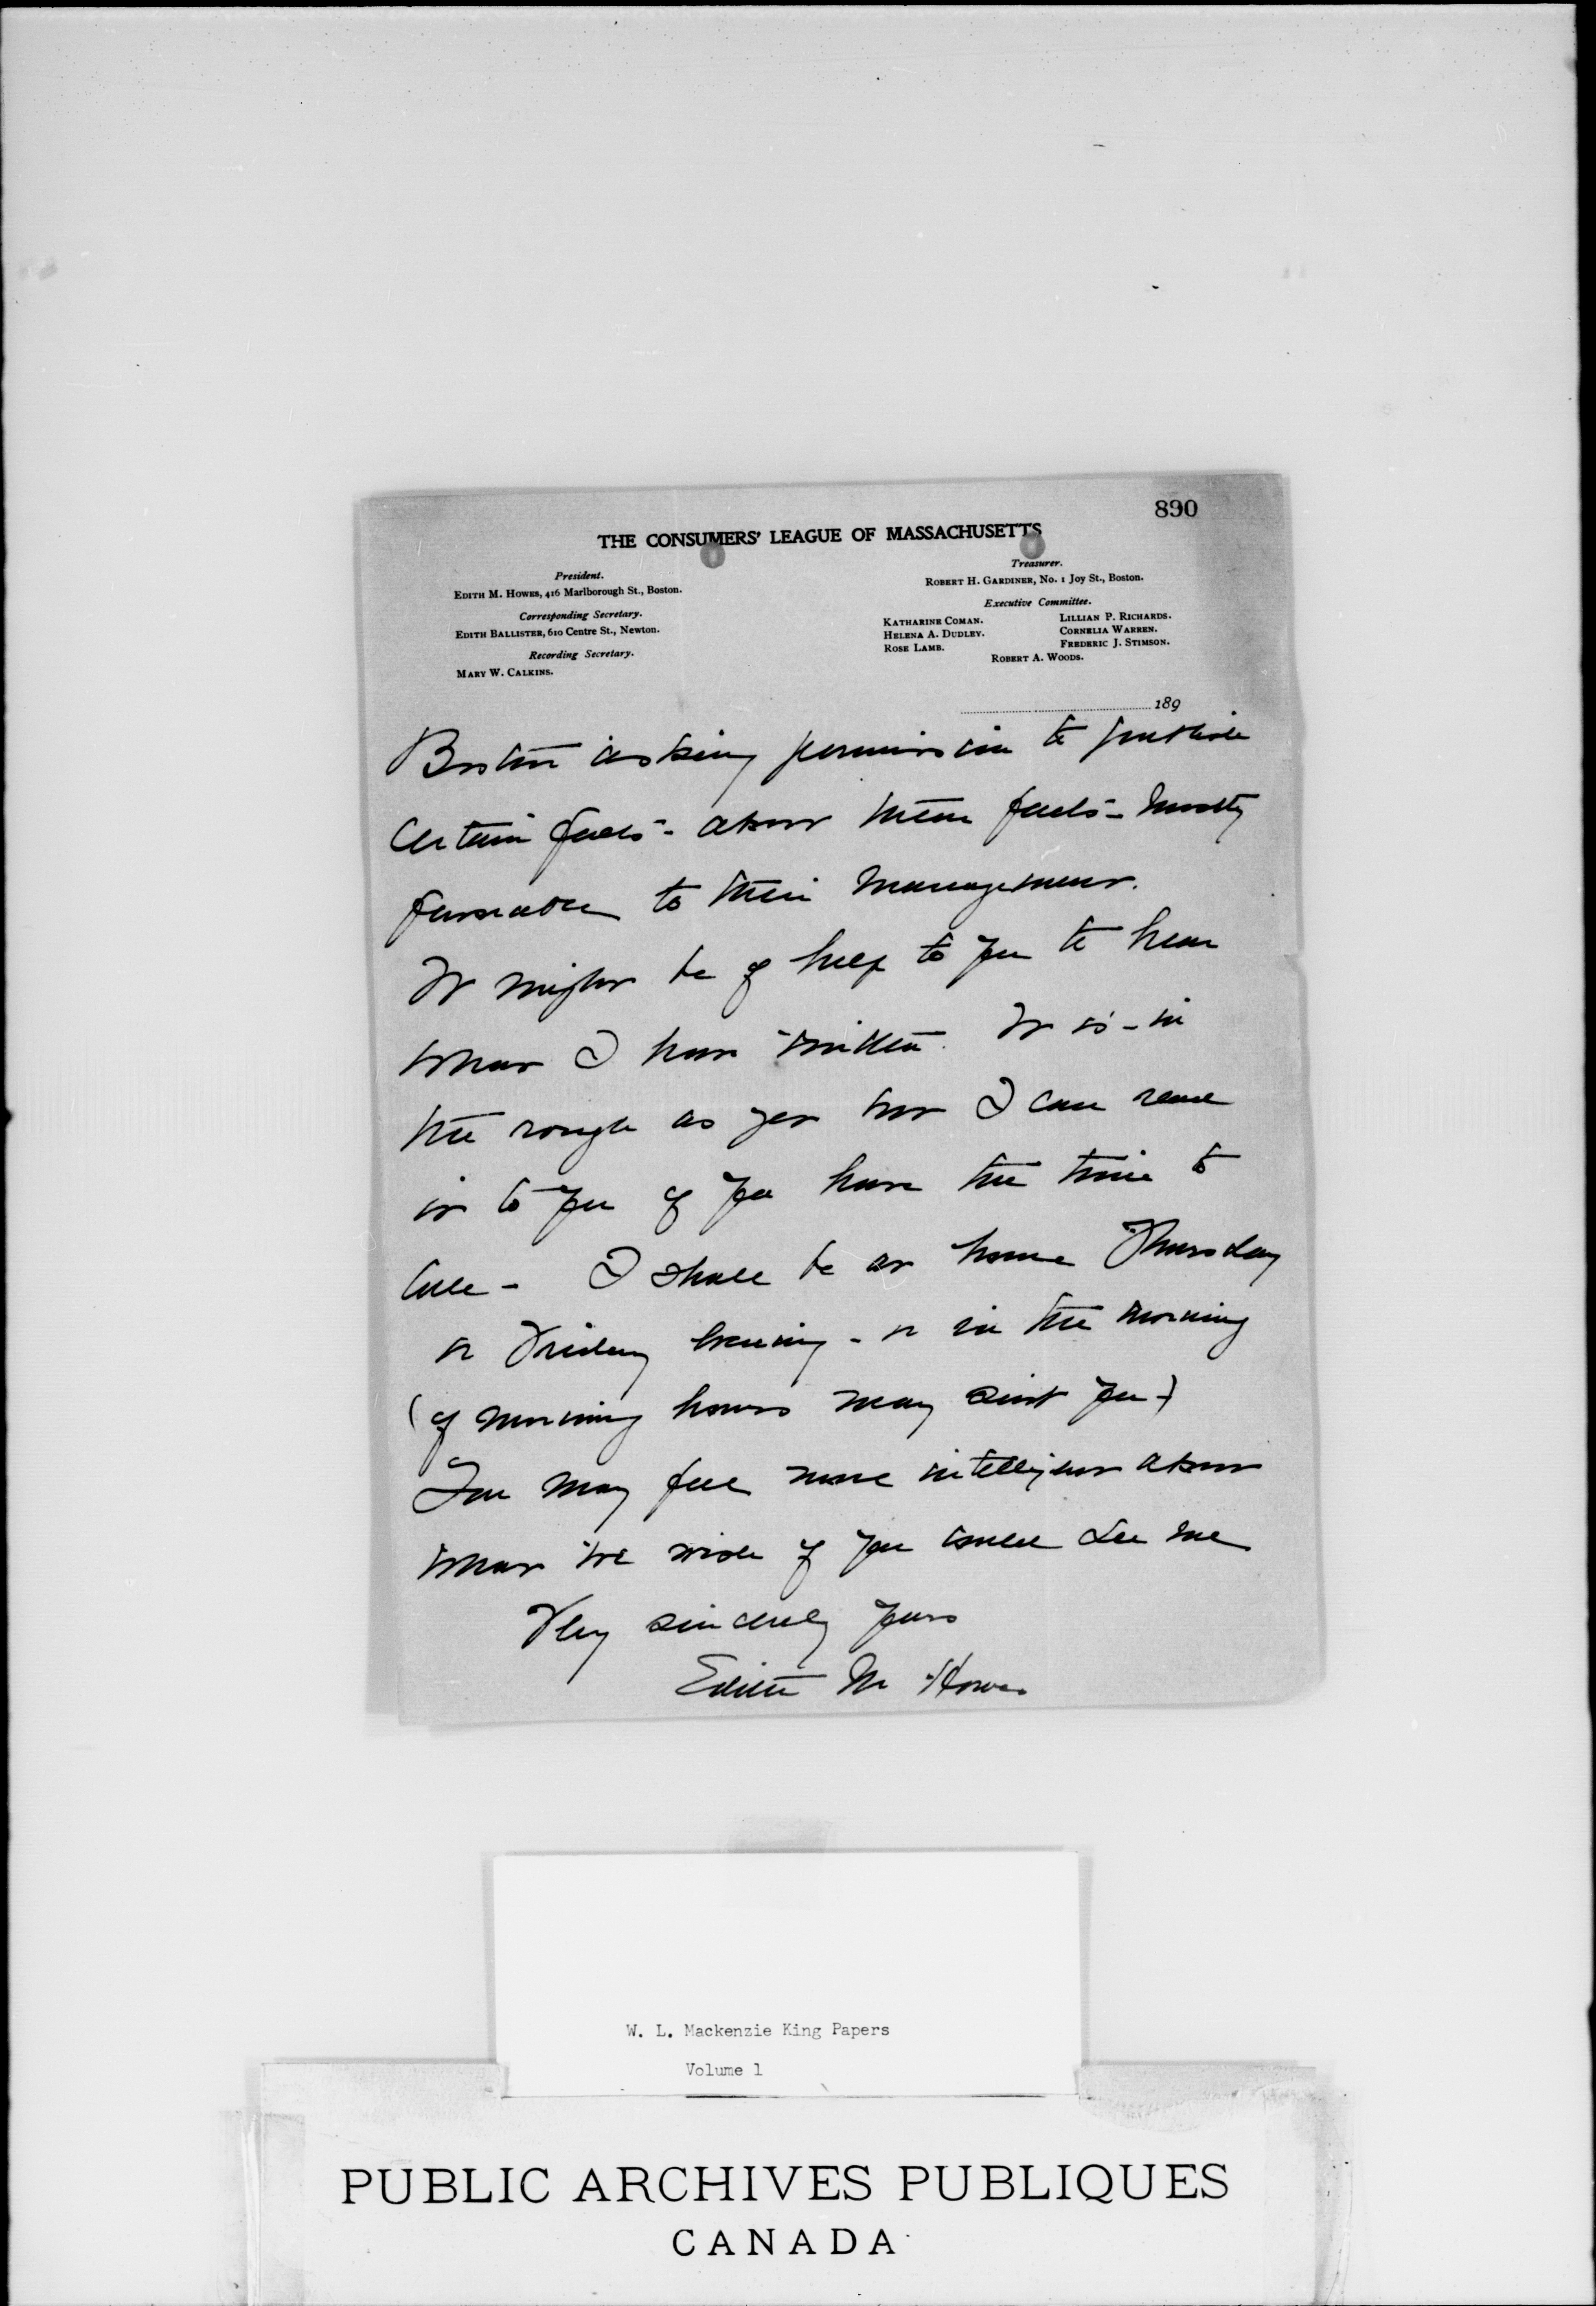 890
THE CONSUMERS' LEAGUE OF MASSACHUSETTS
President.
EDITH M. HOWES, 416 Marlborough St., Boston.
Corresponding Secretary.
EDITH BALLISTER, 610 Centre St., Newton.
Recording Secretary.
MARY W. CALKINS.
Treasurer.
ROBERT H. GARDINER, No. 1 Joy St., Boston.
Executive Committee.
KATHARINE COMAN. LILLIAN P. RICHARDS.
HELENA A. DUDLEY. CORNELIA WARREN.
ROSE LAMB. FREDERIC J. STIMSON.
ROBERT A. WOODS.
189
Boston asking permission to publish
certain facts - about them facts - mostly
favorable to their management.
It might be of help to you to hear
what I have written. It is - in
the rough as yet but I can read
it to you if you have the time to
call - I shall be at home Thursday
or Friday evening - or in the morning
(if morning hours may suit you -)
You may feel more intelligent about
what we wish if you could see me
Very sincerely yours
Edith M Howes
W. L. Mackenzie King Papers
Volume 1
PUBLIC ARCHIVES PUBLIQUES
CANADA